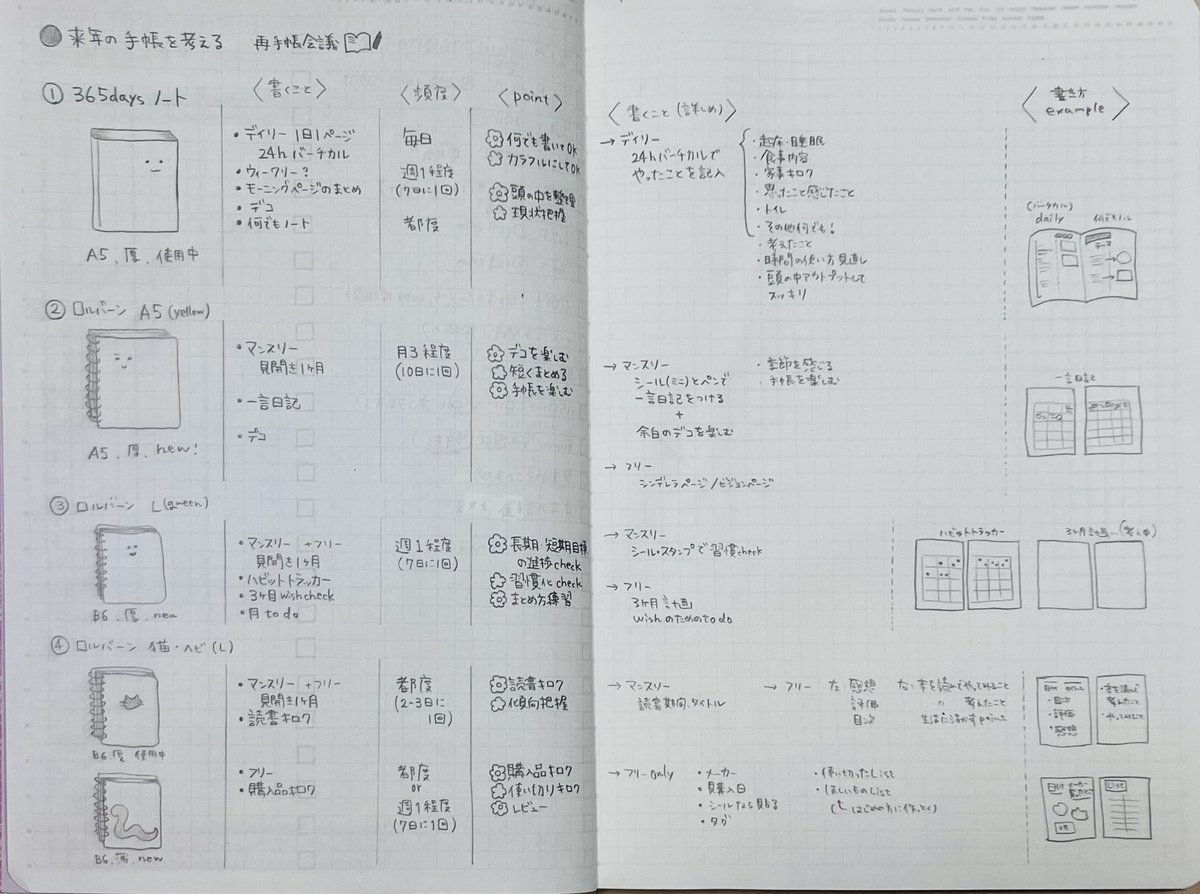 来年の手帳を考える 再手帳会議
① 365days ノート
〈書くこと〉
〈頻度〉
〈point〉
・デイリー 1日1ページ
24h バーチカル
・ウィークリー?
・モーニングページのまとめ
・デコ
・何でもノート
毎日
週1程度
(7日に1回)
都度
何でも書いてOK
カラフルにしてOK
頭の中を整理
現状把握
A5、厚、使用中
② ロルバーン A5 (yellow)
・マンスリー
見開き1ヶ月
・一言日記
・デコ
月3程度
(10日に1回)
デコを楽しむ
短くまとめる
手帳を楽しむ
A5、厚、new!
③ ロルバーン L (green)
・マンスリー +フリー
見開き1ヶ月
・ハビットトラッカー
・3ヶ月 wish check
・月 to do
週1程度
(7日に1回)
長期・短期目標
の進捗check
習慣化check
まとめ方練習
B6、厚、new
④ ロルバーン 猫・ヘビ (L)
・マンスリー +フリー
見開き1ヶ月
・読書キロク
都度
(2-3日に
1回)
読書キロク
傾向把握
B6、厚 使用中
・フリー
・購入品キロク
都度
or
週1程度
(7日に1回)
購入品キロク
使い切りキロク
レビュー
B6、薄、new
〈書くこと (詳しめ)〉
〈書き方
example〉
→ デイリー
24hバーチカルで
やったことを記入
・起床・睡眠
・食事内容
・家事キロク
・思ったこと感じたこと
・トイレ
・その他何でも!
・考えたこと
・時間の使い方見直し
・頭の中アウトプットして
スッキリ
(バーチカル)
daily
何でもノート
テーマ
→ マンスリー
シール(ミニ)とペンで
一言日記をつける
+
余白のデコを楽しむ
・季節を感じる
・手帳を楽しむ
→ フリー
シンデレラページ/ビジョンページ
一言日記
→ マンスリー
シール・スタンプで習慣check
→ フリー
3ヶ月計画
wishのためのto do
ハビットトラッカー
3ヶ月計画…(考え中)
→ マンスリー
読書期間、タイトル
→ フリー 左:感想
評価
目次
右:本を読んでやってみること
〃 考えたこと
生活に活かすpoint
・目次
・評価
・感想
・本を読んで
考えたこと
・やってみること
→ フリーonly
・メーカー
・購入日
・シールなら見本
・タグ
・使い切ったList
・ほしいものList
(はじめの方に作っとく)
日付 メーカー
List